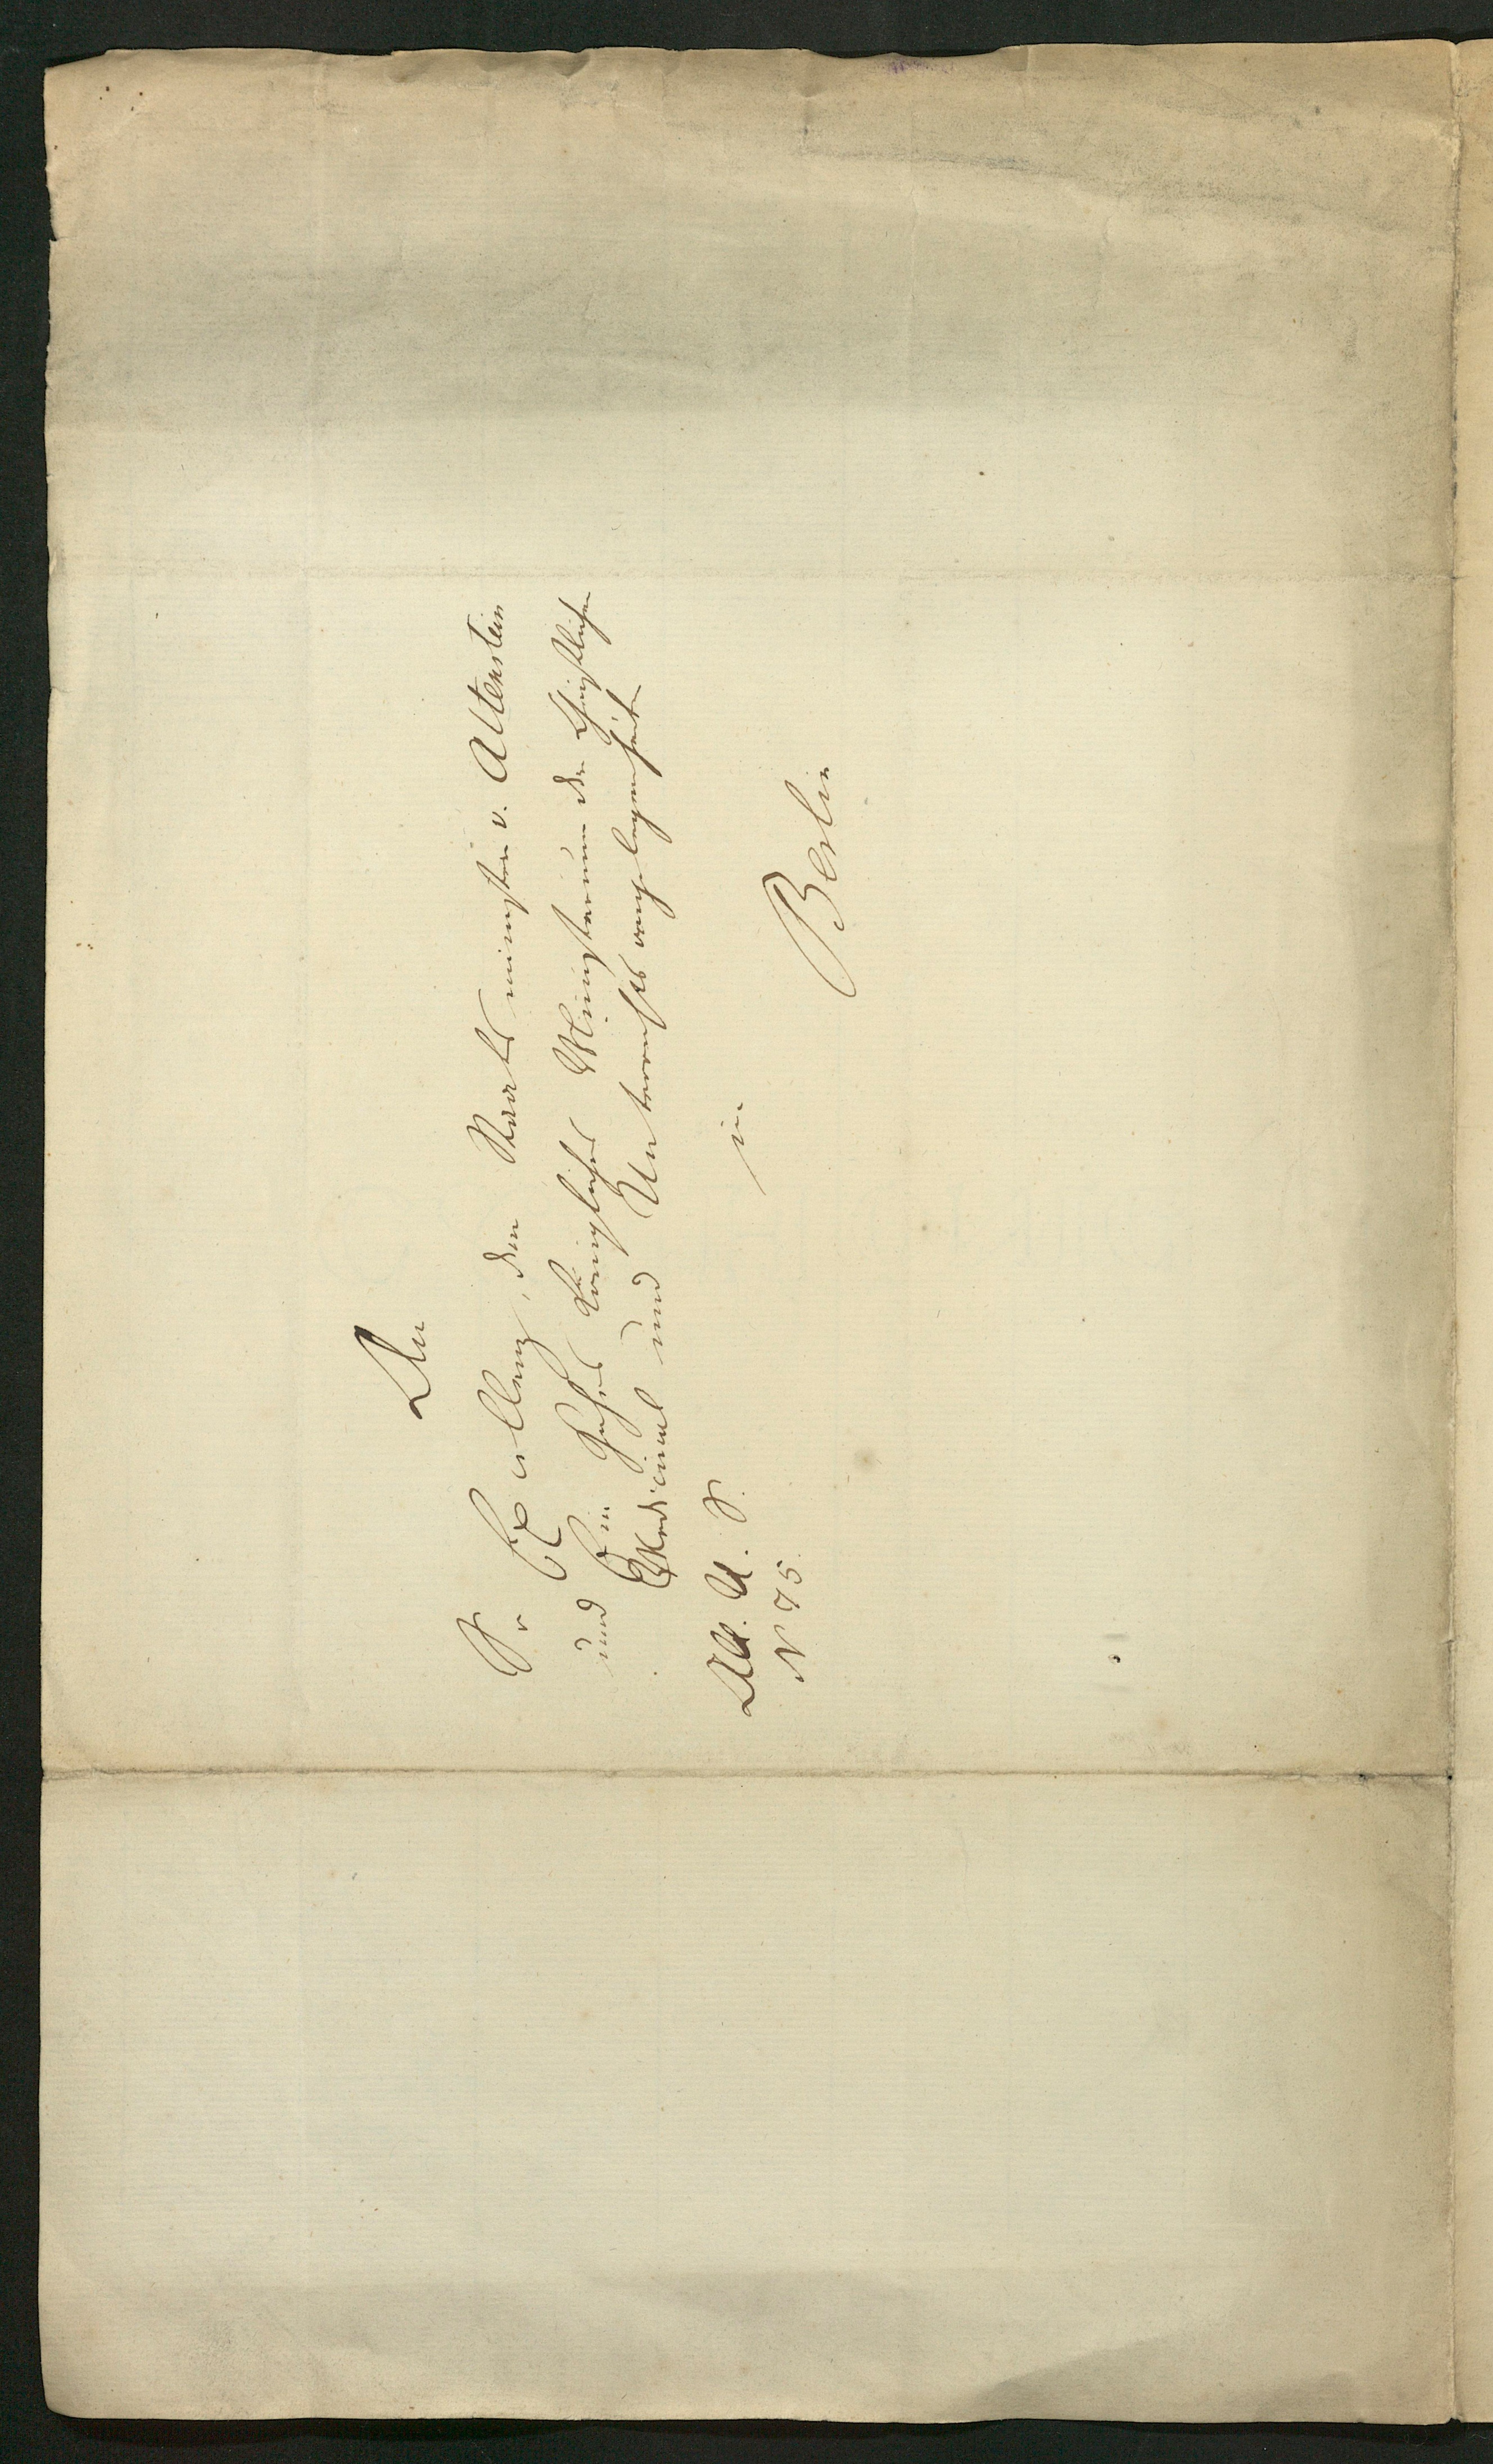 An
Sr Excellenz, den Staatsminister v. Altenstein
und Ein Hohes Königliches Ministerium der Geistlichen
Medicinal und Unterrichtsangelegenheiten
in
Berlin
N 75